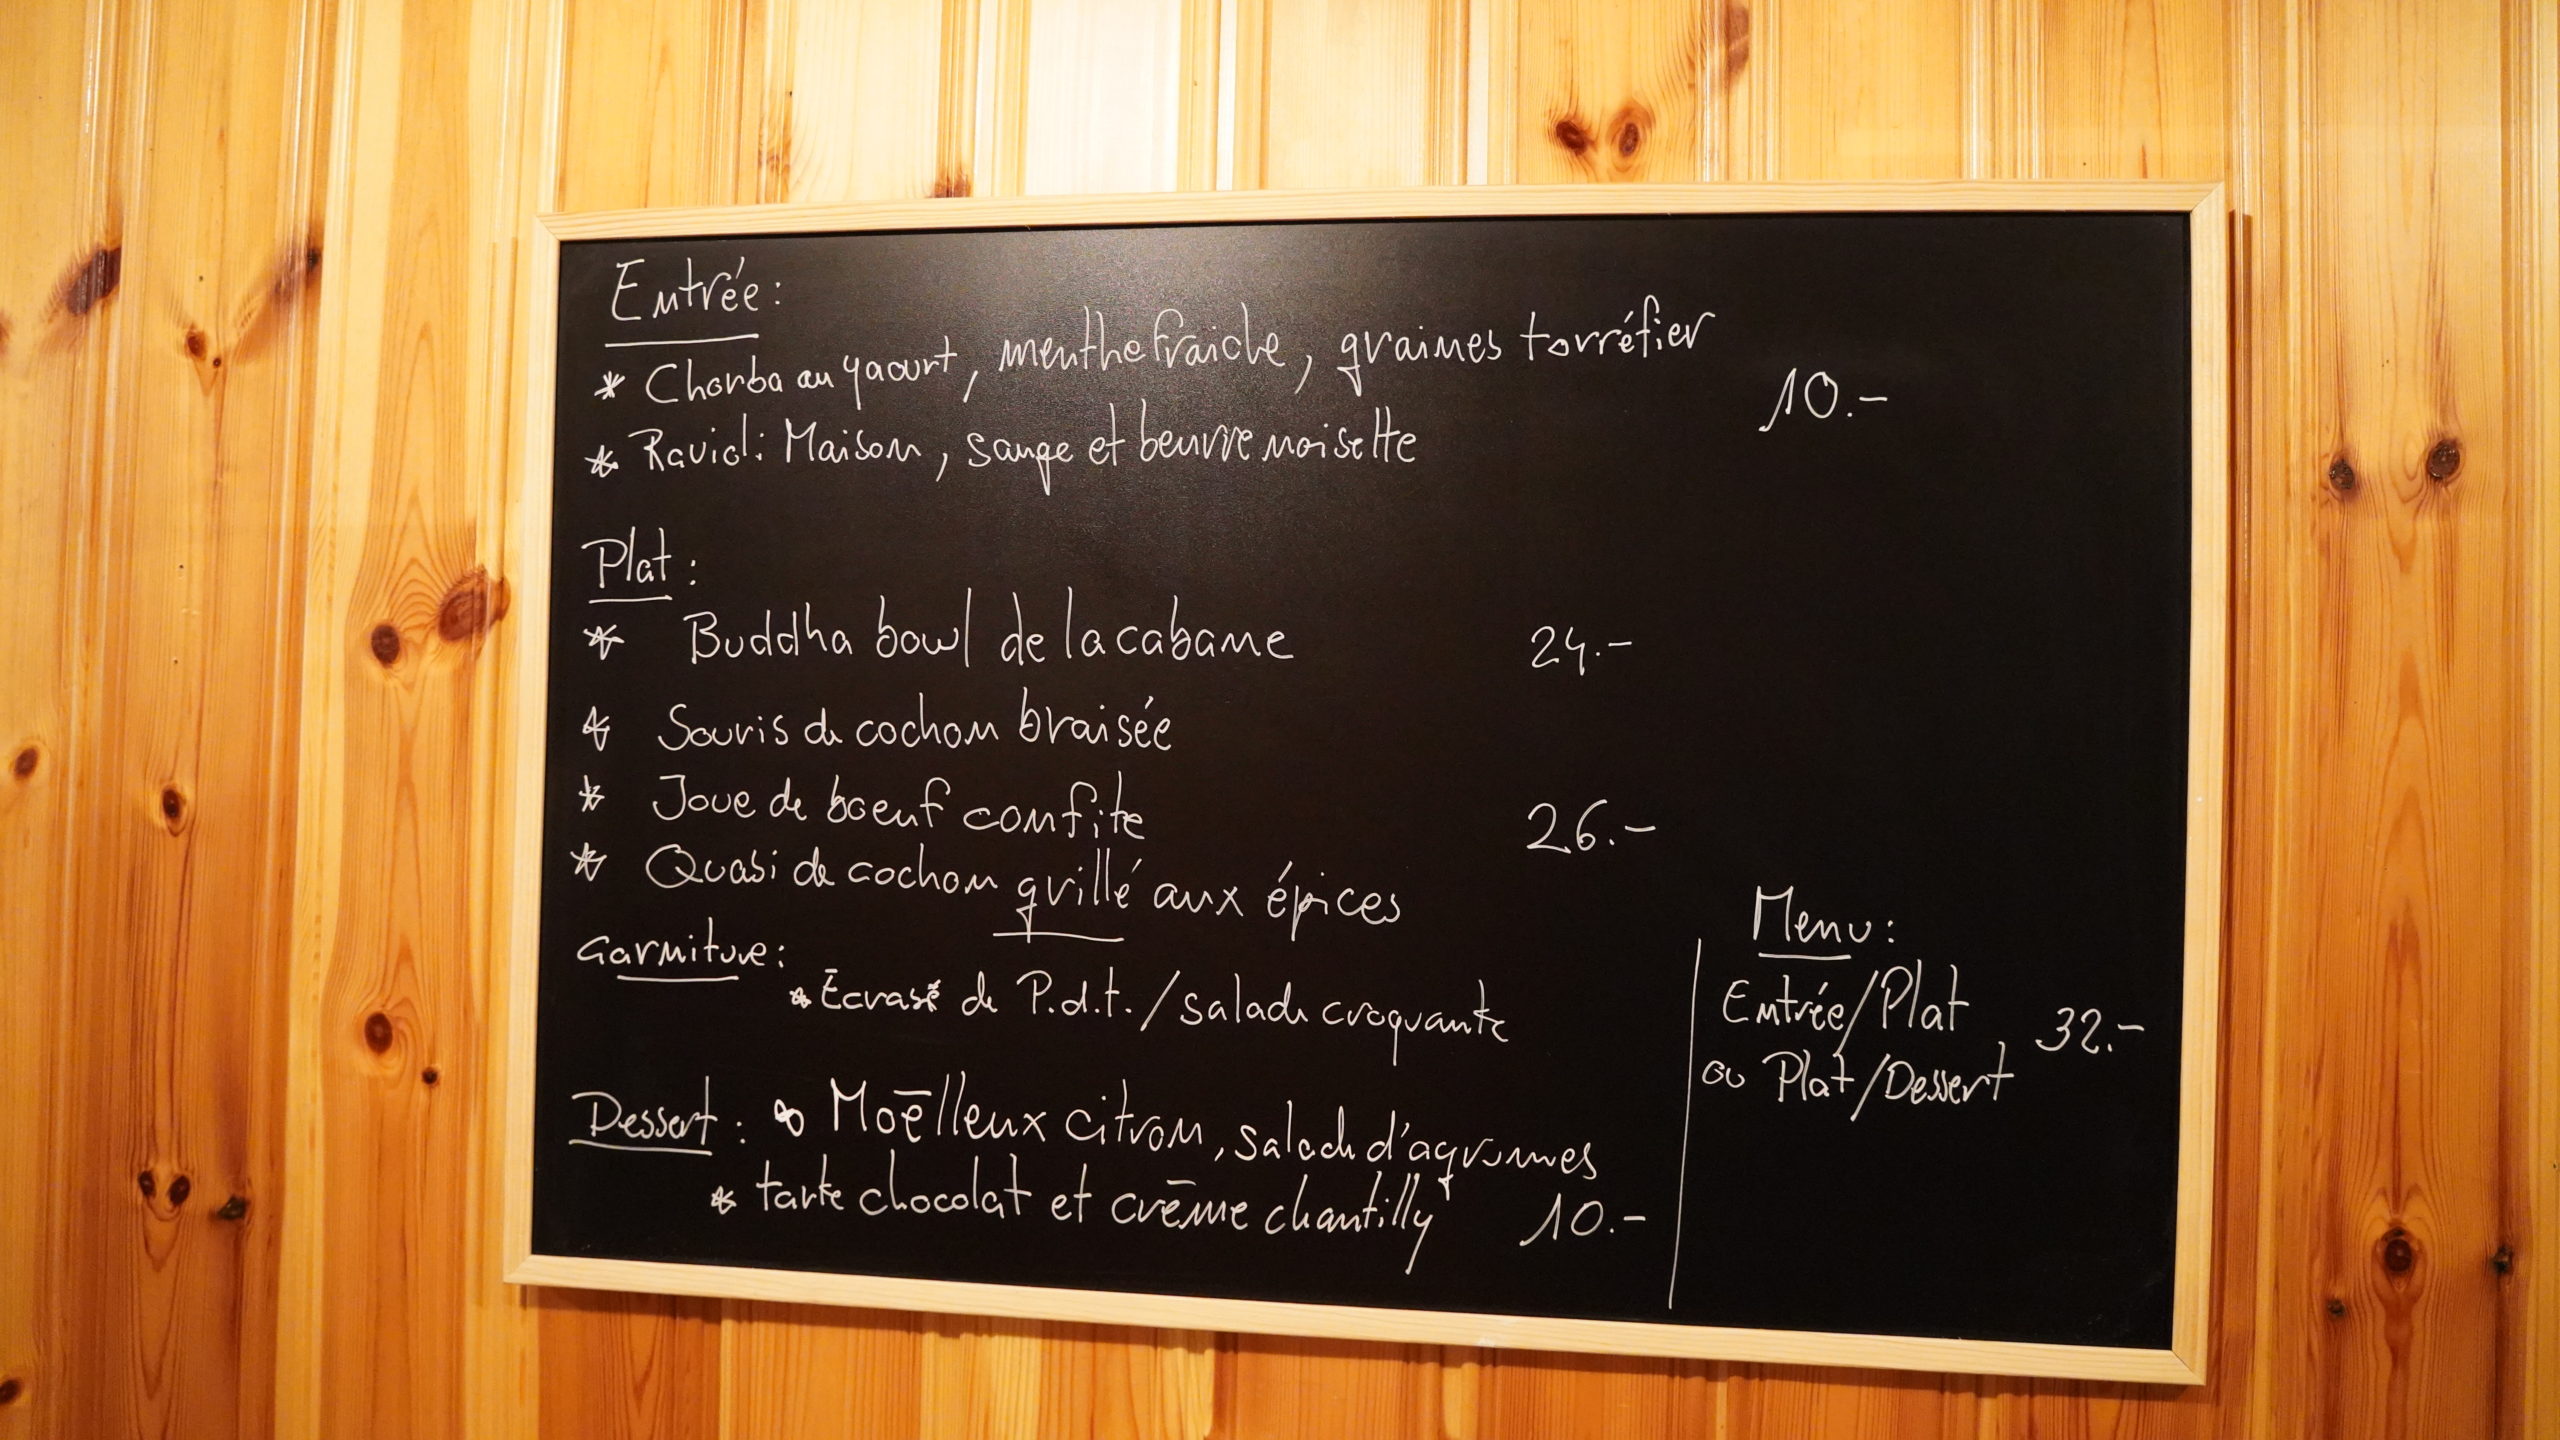 Entrée :
* Chorba au yaourt, menthe fraiche, graines torréfier
10.-
* Ravioli Maison, sauge et beurre noisette
Plat :
* Buddha bowl de la cabane 24.-
* Souris de cochon braisée
* Joue de boeuf confite 26.-
* Quasi de cochon grillé aux épices
Garniture :
* Ecrasé de P.d.t. / salade croquante
Dessert : * Moëlleux citron, salade d'agrumes
* tarte chocolat et crème chantilly 10.-
Menu :
Entrée/Plat
32.-
ou Plat/Dessert